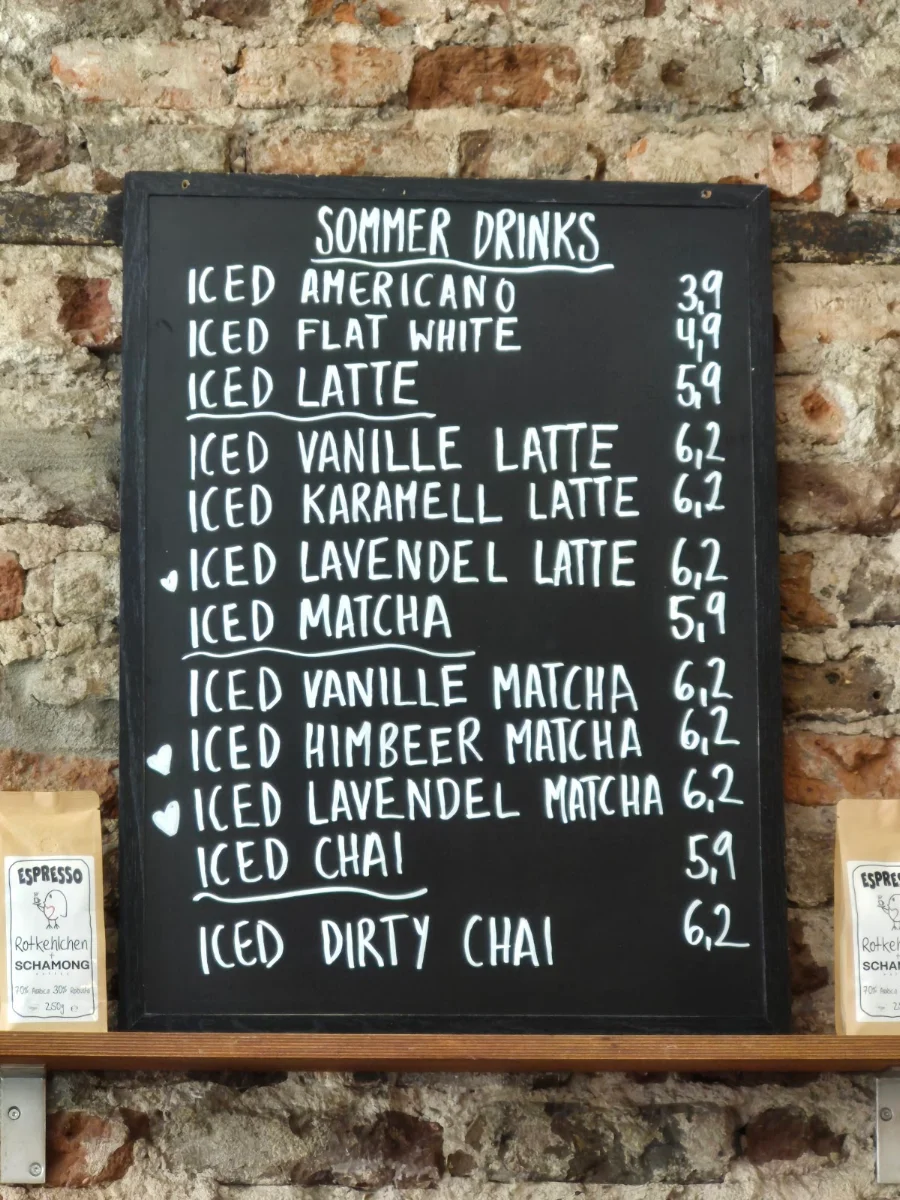 SOMMER DRINKS
ICED AMERICANO 3,9
ICED FLAT WHITE 4,9
ICED LATTE 5,9
ICED VANILLE LATTE 6,2
ICED KARAMELL LATTE 6,2
ICED LAVENDEL LATTE 6,2
ICED MATCHA 5,9
ICED VANILLE MATCHA 6,2
ICED HIMBEER MATCHA 6,2
ICED LAVENDEL MATCHA 6,2
ICED CHAI 5,9
ICED DIRTY CHAI 6,2
ESPRESSO
Rotkehlchen
+
SCHAMONG
70% Arabica 30% Robusta
250g e
ESPRE
Rotkehl
SCHAM
70% Arabica